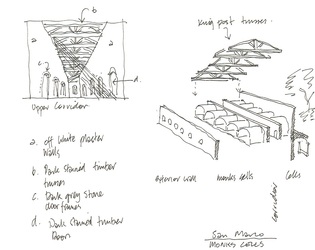 b
King post trusses.
a
a
c
d
Upper Corridor
a. Off White plaster
walls
b. Dark stained timber
trusses
c. Dark grey stone
door frames
d. Dark Stained timber
Doors
exterior walls
monks cells
Cells
corridor
San Marco
MONKS CELLS